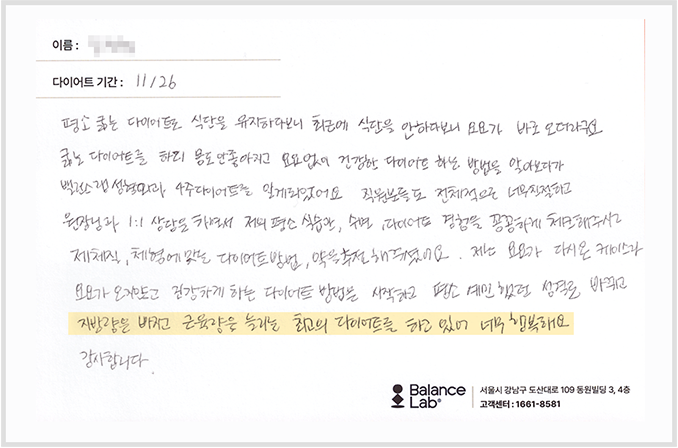 이름 :
다이어트 기간 : 11/26
평소 굶는 다이어트로 식단을 유지하다보니 최근에 식단을 안하다보니 요요가 바로 오더라구요
굶는 다이어트를 하면 몸도 안좋아지고 요요없이 건강한 다이어트 하는 방법을 알아보다가
밸런스랩 성형외과 4주다이어트를 알게되었어요 직원분들도 전체적으로 너무친절하고
원장님과 1:1 상담을 하면서 저의 평소 식습관, 수면, 다이어트 경험을 꼼꼼하게 체크해주시고
제 체질, 체형에 맞는 다이어트방법, 약을 추천해주셨어요. 저는 요요가 다시온 케이스라
요요가 오지않고 건강하게 하는 다이어트 방법을 시작하고 평소 예민했던 성격도 바뀌고
지방량은 빠지고 근육량은 늘리는 최고의 다이어트를 하고 있어 너무 행복해요
감사합니다.
Balance Lab®
서울시 강남구 도산대로 109 동원빌딩 3, 4층
고객센터 : 1661-8581